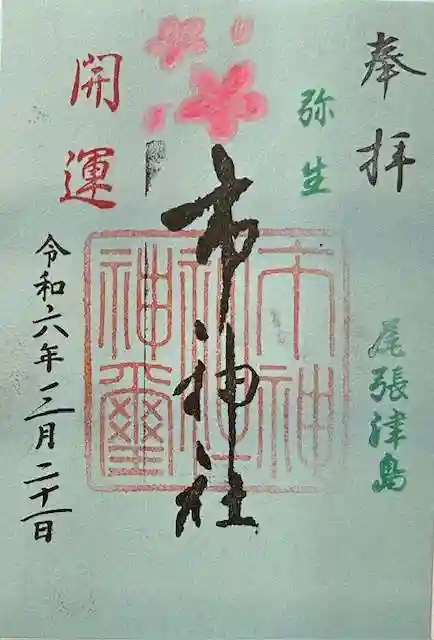 奉拝
弥生
尾張津島
市神社
市神
神社
神璽
開運
令和六年三月二十一日